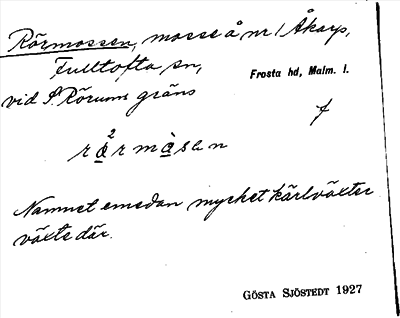 Rörmossen, mosse å nr 1 Åkarp,
Fulltofta sn,
Frosta hd, Malm. l.
vid S. Rörums gräns
Namnet emedan mycket kärlväxter
växte där.
GÖSTA SJÖSTEDT 1927